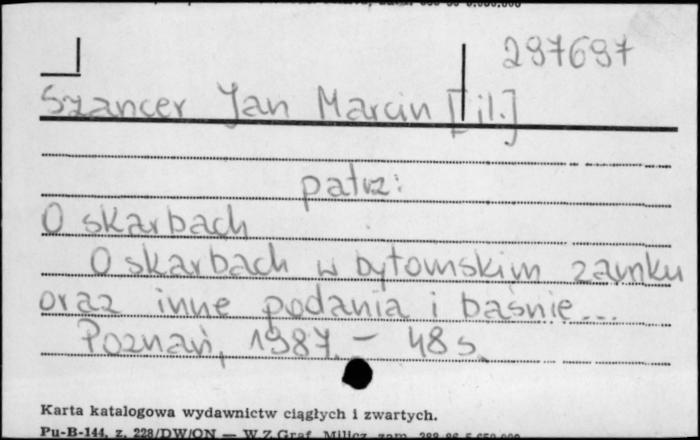 297697
Szancer Jan Marcin [il.]
patrz:
O skarbach
O skarbach w bytomskim zamku
oraz inne podania i baśnie...
Poznań, 1987. – 48 s.
Karta katalogowa wydawnictw ciągłych i zwartych.
Pu-B-144, z. 228/DW/ON — W.Z.Graf. Milicz, zam.